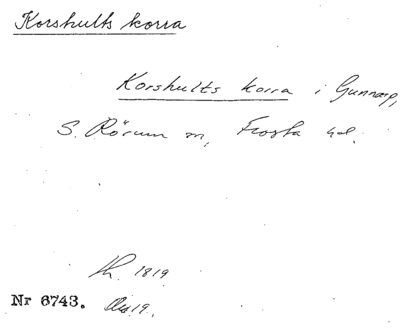 Korshults korra
Korshults korra i Gunnarp,
S. Rörum sn, Frosta hd.
1819
Nr 6743. 19.